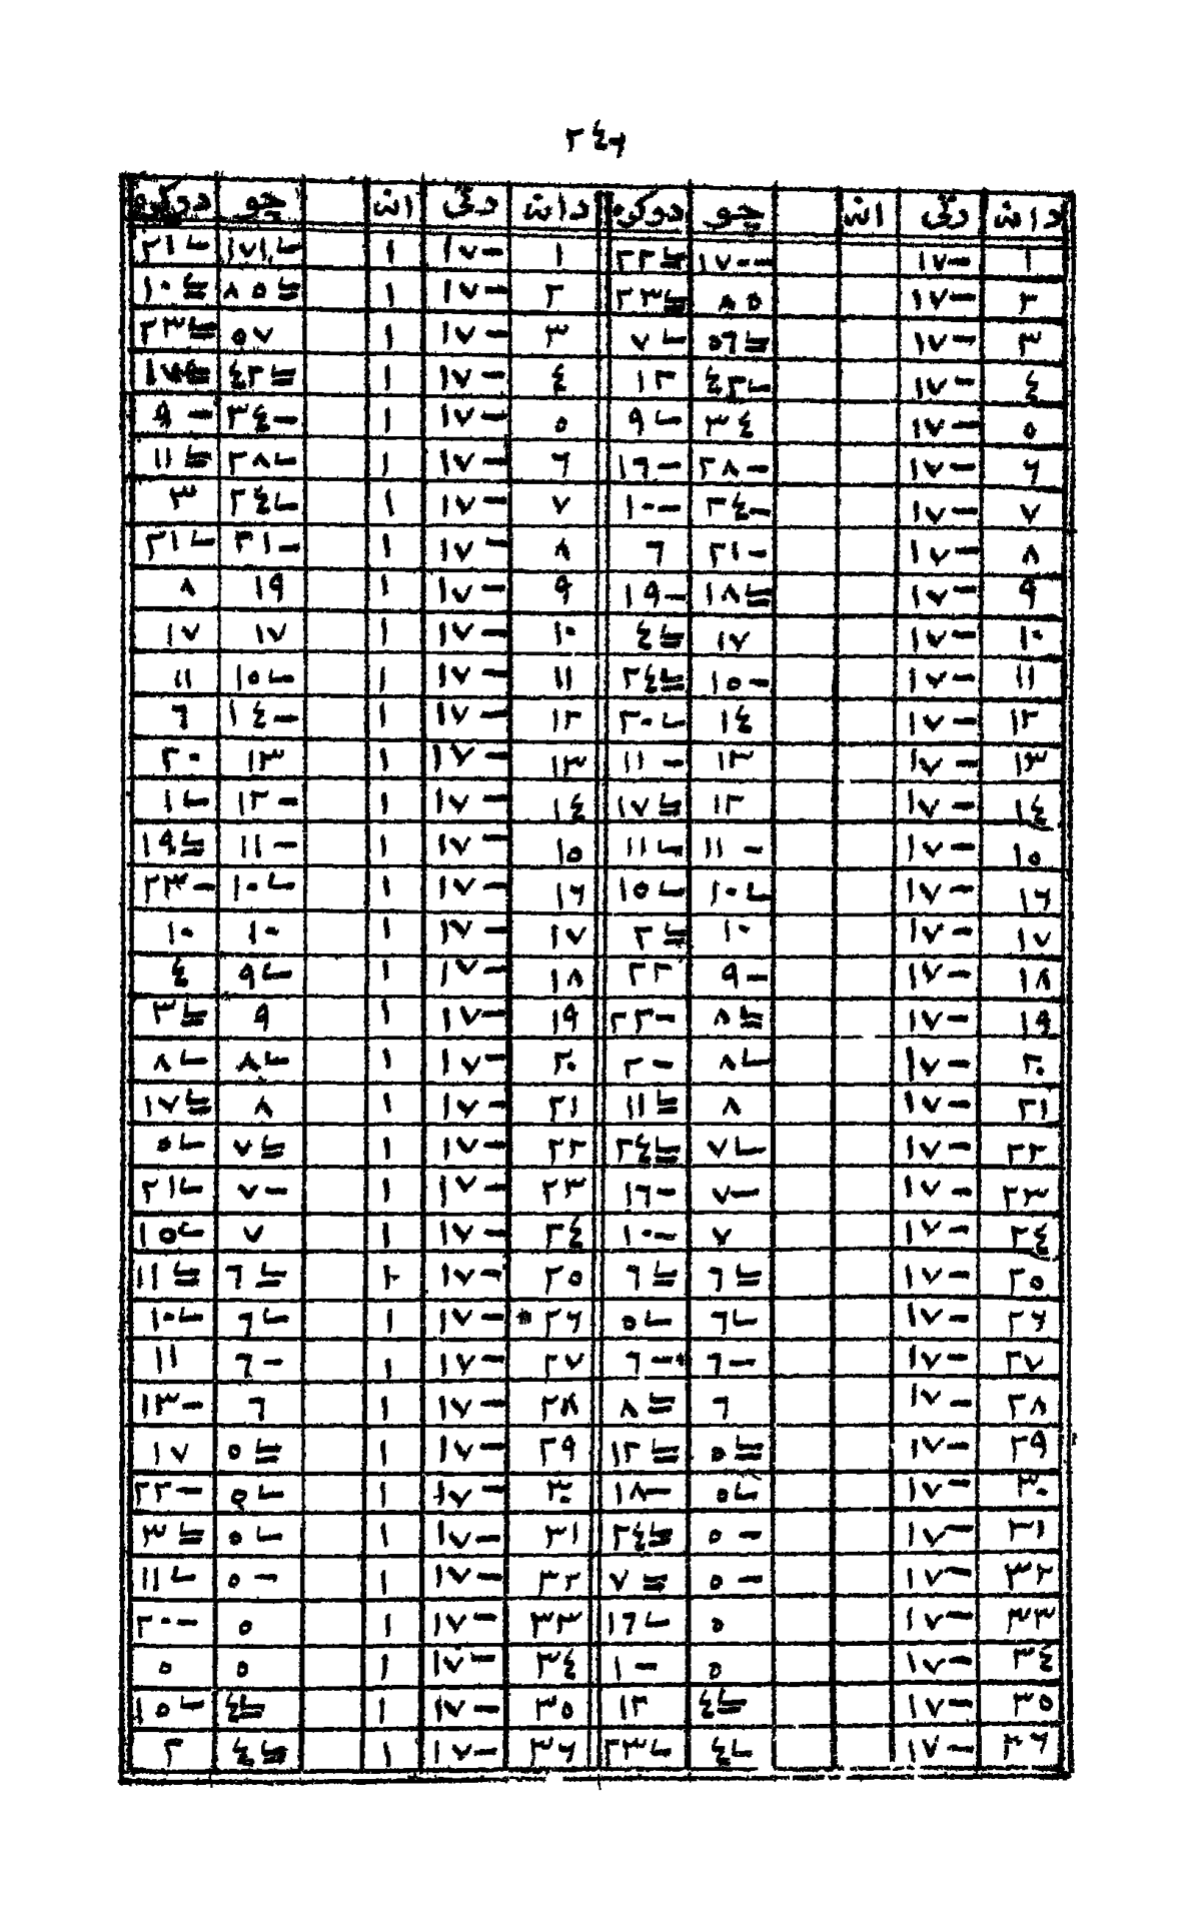 ٢٤٦
دانہ رتی انہ چو دوکره دانہ رتی انہ چو دوکره
١ -١٧ -١٧٠ ٢٢ ١ -١٧ ١ ١٧١ ٢١
٢ -١٧ ٨٥ ٢٣ ٢ -١٧ ١ ٨٥ ١٠
٣ -١٧ ٥٦ ٧ ٣ -١٧ ١ ٥٧ ٢٣
٤ -١٧ ٤٢ ١٢ ٤ -١٧ ١ ٤٢
٥ -١٧ ٣٤ ٩ ٥ -١٧ ١ -٣٤ -٩
٦ -١٧ -٢٨ -١٦ ٦ -١٧ ١ ٢٨ ١١
٧ -١٧ -٢٤ -١٠ ٧ -١٧ ١ ٢٤ ٣
٨ -١٧ -٢١ ٦ ٨ -١٧ ١ -٢١ ٢١
٩ -١٧ ١٨ -١٩ ٩ -١٧ ١ ١٩ ٨
١٠ -١٧ ١٧ ٤ ١٠ -١٧ ١ ١٧ ١٧
١١ -١٧ -١٥ ٢٤ ١١ -١٧ ١ ١٥ ١١
١٢ -١٧ ١٤ ٢٠ ١٢ -١٧ ١ -١٤ ٦
١٣ -١٧ ١٣ -١١ ١٣ -١٧ ١ ١٣ ٢٠
١٤ -١٧ ١٢ ١٧ ١٤ -١٧ ١ -١٢ ١
١٥ -١٧ -١١ ١١ ١٥ -١٧ ١ -١١ ١٩
١٦ -١٧ ١٠ ١٥ ١٦ -١٧ ١ ١٠ -٢٣
١٧ -١٧ ١٠ ٢ ١٧ -١٧ ١ ١٠ ١٠
١٨ -١٧ -٩ ٢٢ ١٨ -١٧ ١ ٩ ٤
١٩ -١٧ ٨ -٢٢ ١٩ -١٧ ١ ٩ ٣
٢٠ -١٧ ٨ -٢ ٢٠ -١٧ ١ ٨ ٨
٢١ -١٧ ٨ ١١ ٢١ -١٧ ١ ٨ ١٧
٢٢ -١٧ ٧ ٢٤ ٢٢ -١٧ ١ ٧ ٥
٢٣ -١٧ -٧ -١٦ ٢٣ -١٧ ١ -٧ ٢١
٢٤ -١٧ ٧ -١٠ ٢٤ -١٧ ١ ٧ ١٥
٢٥ -١٧ ٦ ٦ ٢٥ -١٧ ٢ ٦ ١١
٢٦ -١٧ ٦ ٥ *٢٦ -١٧ ١ ٦ ١٠
٢٧ -١٧ -٦ -٦ ٢٧ -١٧ ١ -٦ ١١
٢٨ -١٧ ٦ ٨ ٢٨ -١٧ ١ ٦ -١٣
٢٩ -١٧ ٥ ١٢ ٢٩ -١٧ ١ ٥ ١٧
٣٠ -١٧ ٥ -١٨ ٣٠ -١٧ ١ ٥ -٢٢
٣١ -١٧ -٥ ٢٤ ٣١ -١٧ ١ ٥ ٣
٣٢ -١٧ -٥ ٧ ٣٢ -١٧ ١ -٥ ١١
٣٣ -١٧ ٥ ١٦ ٣٣ -١٧ ١ ٥ -٢٠
٣٤ -١٧ ٥ -١ ٣٤ -١٧ ١ ٥ ٥
٣٥ -١٧ ٤ ١٢ ٣٥ -١٧ ١ ٤ ١٥
٣٦ -١٧ ٤ ٢٣ ٣٦ -١٧ ١ ٤ ٢